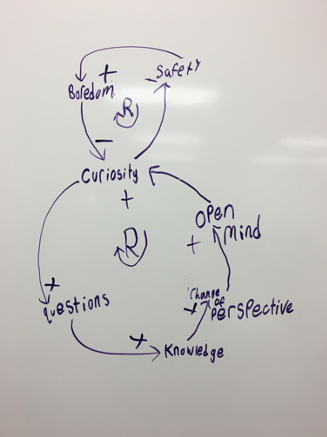 _Safety
+
Boredom
R
−
Curiosity
+
Open
Mind
R
+
+
Questions
Change
of
+ Perspective
+
Knowledge